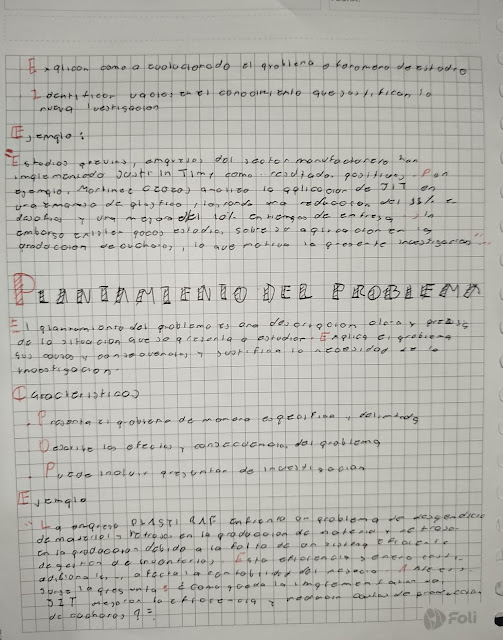 Explican como a evolucionado el problema o fenomeno de estudio
Identificar vacios en el conocimiento que justifican la
nueva investigacion
Ejemplo:
"Estudios previos, empresas del sector manufacturero han
implementado Just in Time, como resultados positivos. Por
ejemplo, Martinez (2020) analizo la aplicacion de JIT en
una empresa de plastico, logrando una reduccion del 35% e
desechos y una mejora del 20% en tiempos de entrega. Sin
embargo existen pocos estudios sobre su aplicacion en la
produccion de cucharas, lo que motiva la presente investigacion"
PLANTAMIENTO DEL PROBLEMA
El planteamiento del problema es una descripcion clara y precisa
de la situacion que se presenta a estudiar. Explica el problema
sus causas y consecuencias y justifica la necesidad de la
investigacion.
Caracteristicas
. Presenta el problema de manera especifica y delimitada
. Describe los efectos y consecuencias del problema
. Puede incluir preguntas de investigacion
Ejemplo
"La empresa PLASTI RAF enfrenta un problema de desperdicio
de material y retrasos en la produccion de material y retraso
en la produccion debido a la falta de un sistema eficiente
de gestion de inventarios. Esta eficiencia genera costos
adicionales y afecta la rentabilidad del negocio. Ante esto
surge la pregunta: ¿como puede la implementacion del
JIT mejorar la eficiencia y reducir costos de produccion
de cucharas
Foli